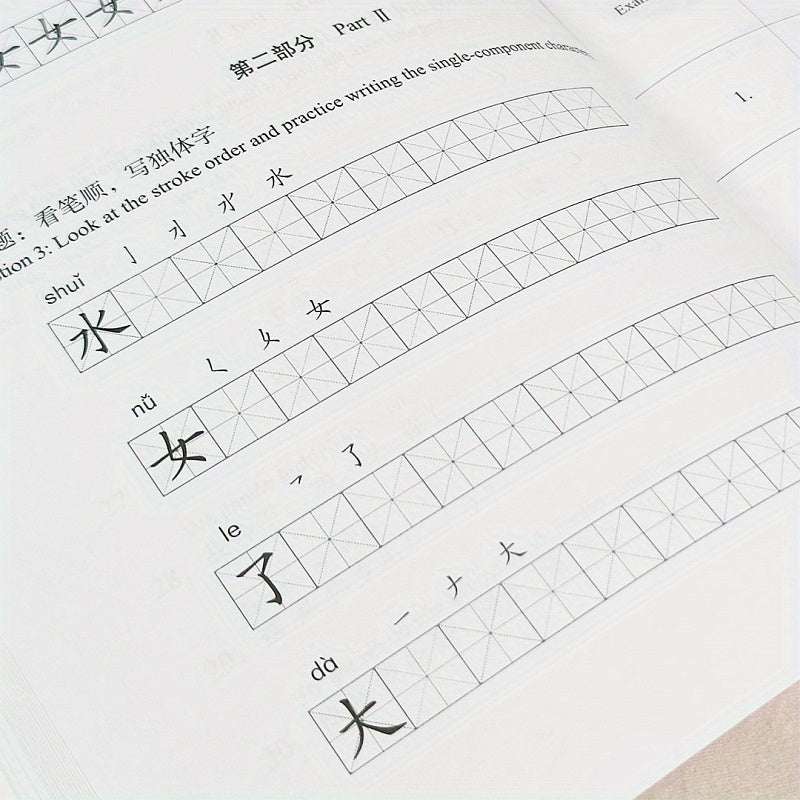 女 女
第二部分 Part Ⅱ
题：看笔顺，写独体字
tion 3: Look at the stroke order and practice writing the single-component
1.
shuǐ
水
水
nǚ
女
女
le
了
了
dà
一 ナ 大
大